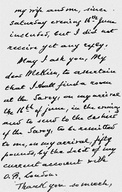 my wife and son, since
Saturday evening 16th June
inclusive, but I did not
receive yet any reply.
May I ask you, My
dear McKim, to ascertain
that I shall find a room
at the Savoy, on my arrival
the 16th of June, in the evening
and to send to the cashier
of the Savoy, to be remitted
to me, on my arrival, fifty
pounds, by the debit of my
current account with
O.B. London.
Thank you so much,